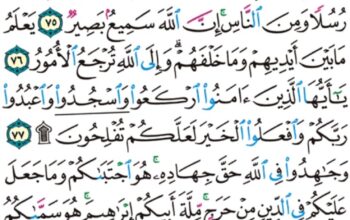 رُسُلًا وَمِنَ النَّاسِ ۚ إِنَّ اللَّهَ سَمِيعٌۢ بَصِيرٌ ﴿٧٥﴾ يَعْلَمُ
مَا بَيْنَ أَيْدِيهِمْ وَمَا خَلْفَهُمْ ۗ وَإِلَى اللَّهِ تُرْجَعُ الْأُمُورُ ﴿٧٦﴾
يَٰٓأَيُّهَا الَّذِينَ ءَامَنُوا ارْكَعُوا وَاسْجُدُوا وَاعْبُدُوا
رَبَّكُمْ وَافْعَلُوا الْخَيْرَ لَعَلَّكُمْ تُفْلِحُونَ ۩ ﴿٧٧﴾
وَجَٰهِدُوا فِي اللَّهِ حَقَّ جِهَادِهِ ۚ هُوَ اجْتَبَىٰكُمْ وَمَا جَعَلَ
عَلَيْكُمْ فِي الدِّينِ مِنْ حَرَجٍ ۚ مِّلَّةَ أَبِيكُمْ إِبْرَٰهِيمَ ۚ هُوَ سَمَّىٰكُمُ